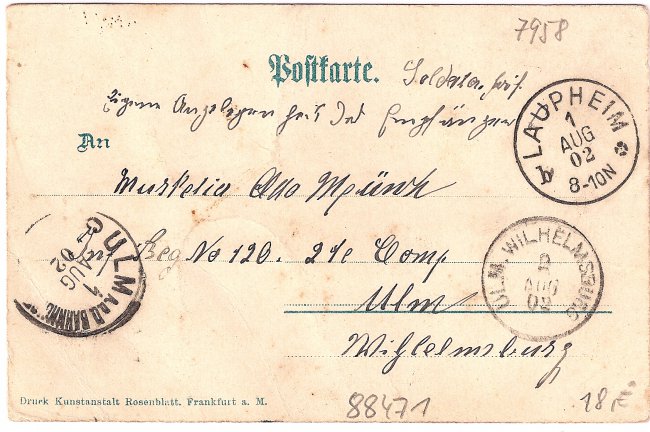 7958
Postkarte.
Soldatenbrief.
Eigene Angelegenheit des Empfängers
An
Musketier Otto Münch
Inf Reg No 120. 2te Comp
Ulm
Wihlelmsburg
LAUPHEIM
1
AUG
02
8-10N
ULM a.d.D. BAHNHOF
1
AUG
02
ULM. WILHELMSBURG
2
AUG
02
Druck Kunstanstalt Rosenblatt. Frankfurt a. M.
88471
18,-